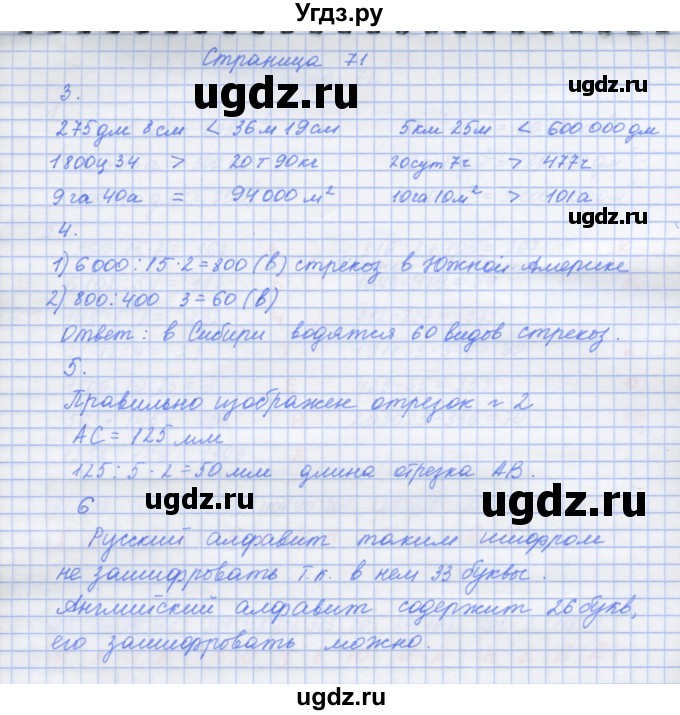 Угдз.ру
Страница 71
ugdz.ru ugdz.ru
3.
275дм 8см < 36м 19см 5км 25м < 600 000дм
1800ц 34 > 20т 90кг 20сут 7ч > 477ч
9га 40а = 94000 м² 10га 10м² > 101а
ugdz.ru ugdz.ru
4.
1) 6000:15·2=800 (в) стрекоз в Южной Америке
2) 800:400 3=60 (в)
ugdz.ru
Ответ: в Сибири водятся 60 видов стрекоз.
5.
Правильно изображен отрезок г 2
ugdz.ru
АС = 125 мм
125:5·2=50 мм длина отрезка АВ.
6
ugdz.ru ugdz.ru
Русский алфавит таким шифром
не зашифровать т.к. в нем 33 буквы.
Английский алфавит содержит 26 букв,
ugdz.ru
его зашифровать можно.
ugdz.ru